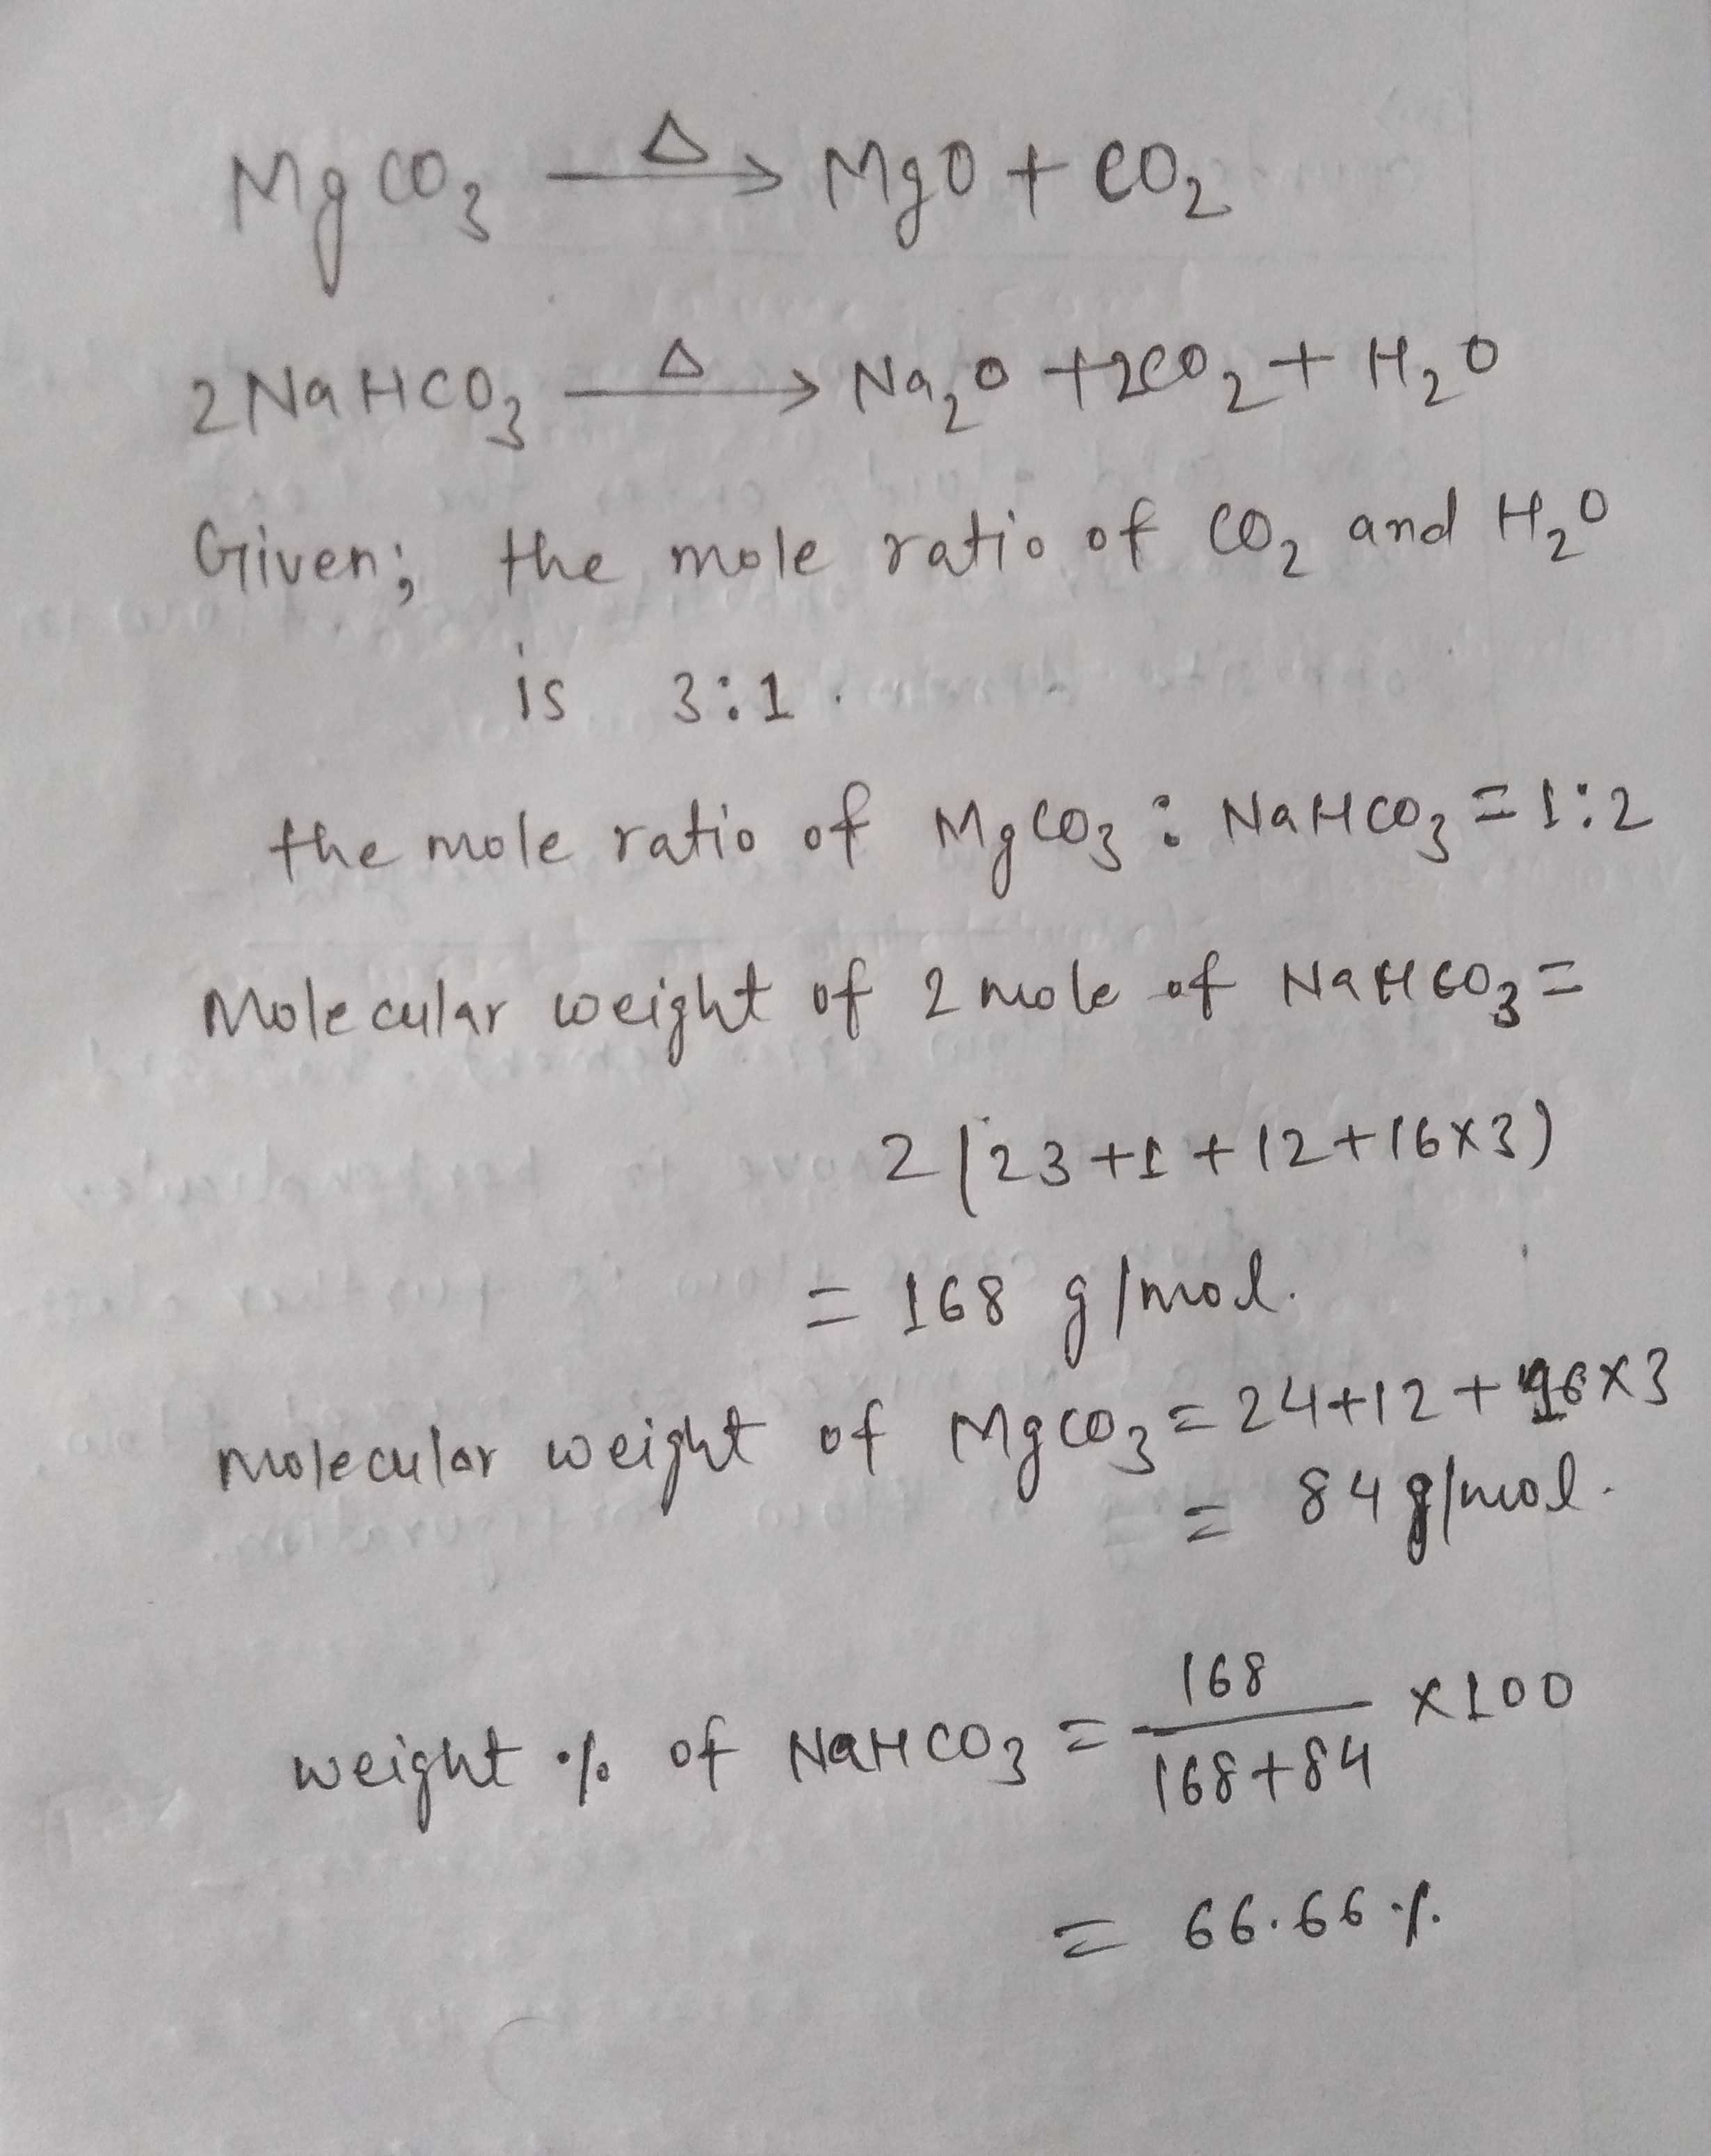 MgCO₃ —Δ→ MgO + CO₂
2NaHCO₃ —Δ→ Na₂O + 2CO₂ + H₂O
Given; the mole ratio of CO₂ and H₂O
is 3:1.
the mole ratio of MgCO₃ : NaHCO₃ = 1:2
Molecular weight of 2 mole of NaHCO₃ =
2(23+1+12+16×3)
= 168 g/mol.
molecular weight of MgCO₃ = 24+12+16×3
= 84 g/mol.
weight % of NaHCO₃ = 168/(168+84) ×100
= 66.66 %.